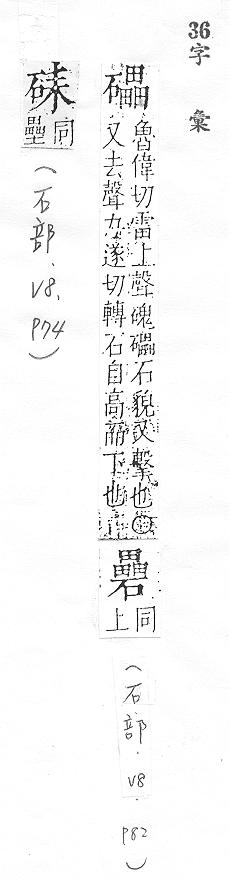 36字彙
礌
魯偉切雷上聲磈礌石貌又擊也○
又去聲力遂切轉石自高下也
礨
同
上
(石部.V8.P82)
同
壘
(石部.V8.P74)